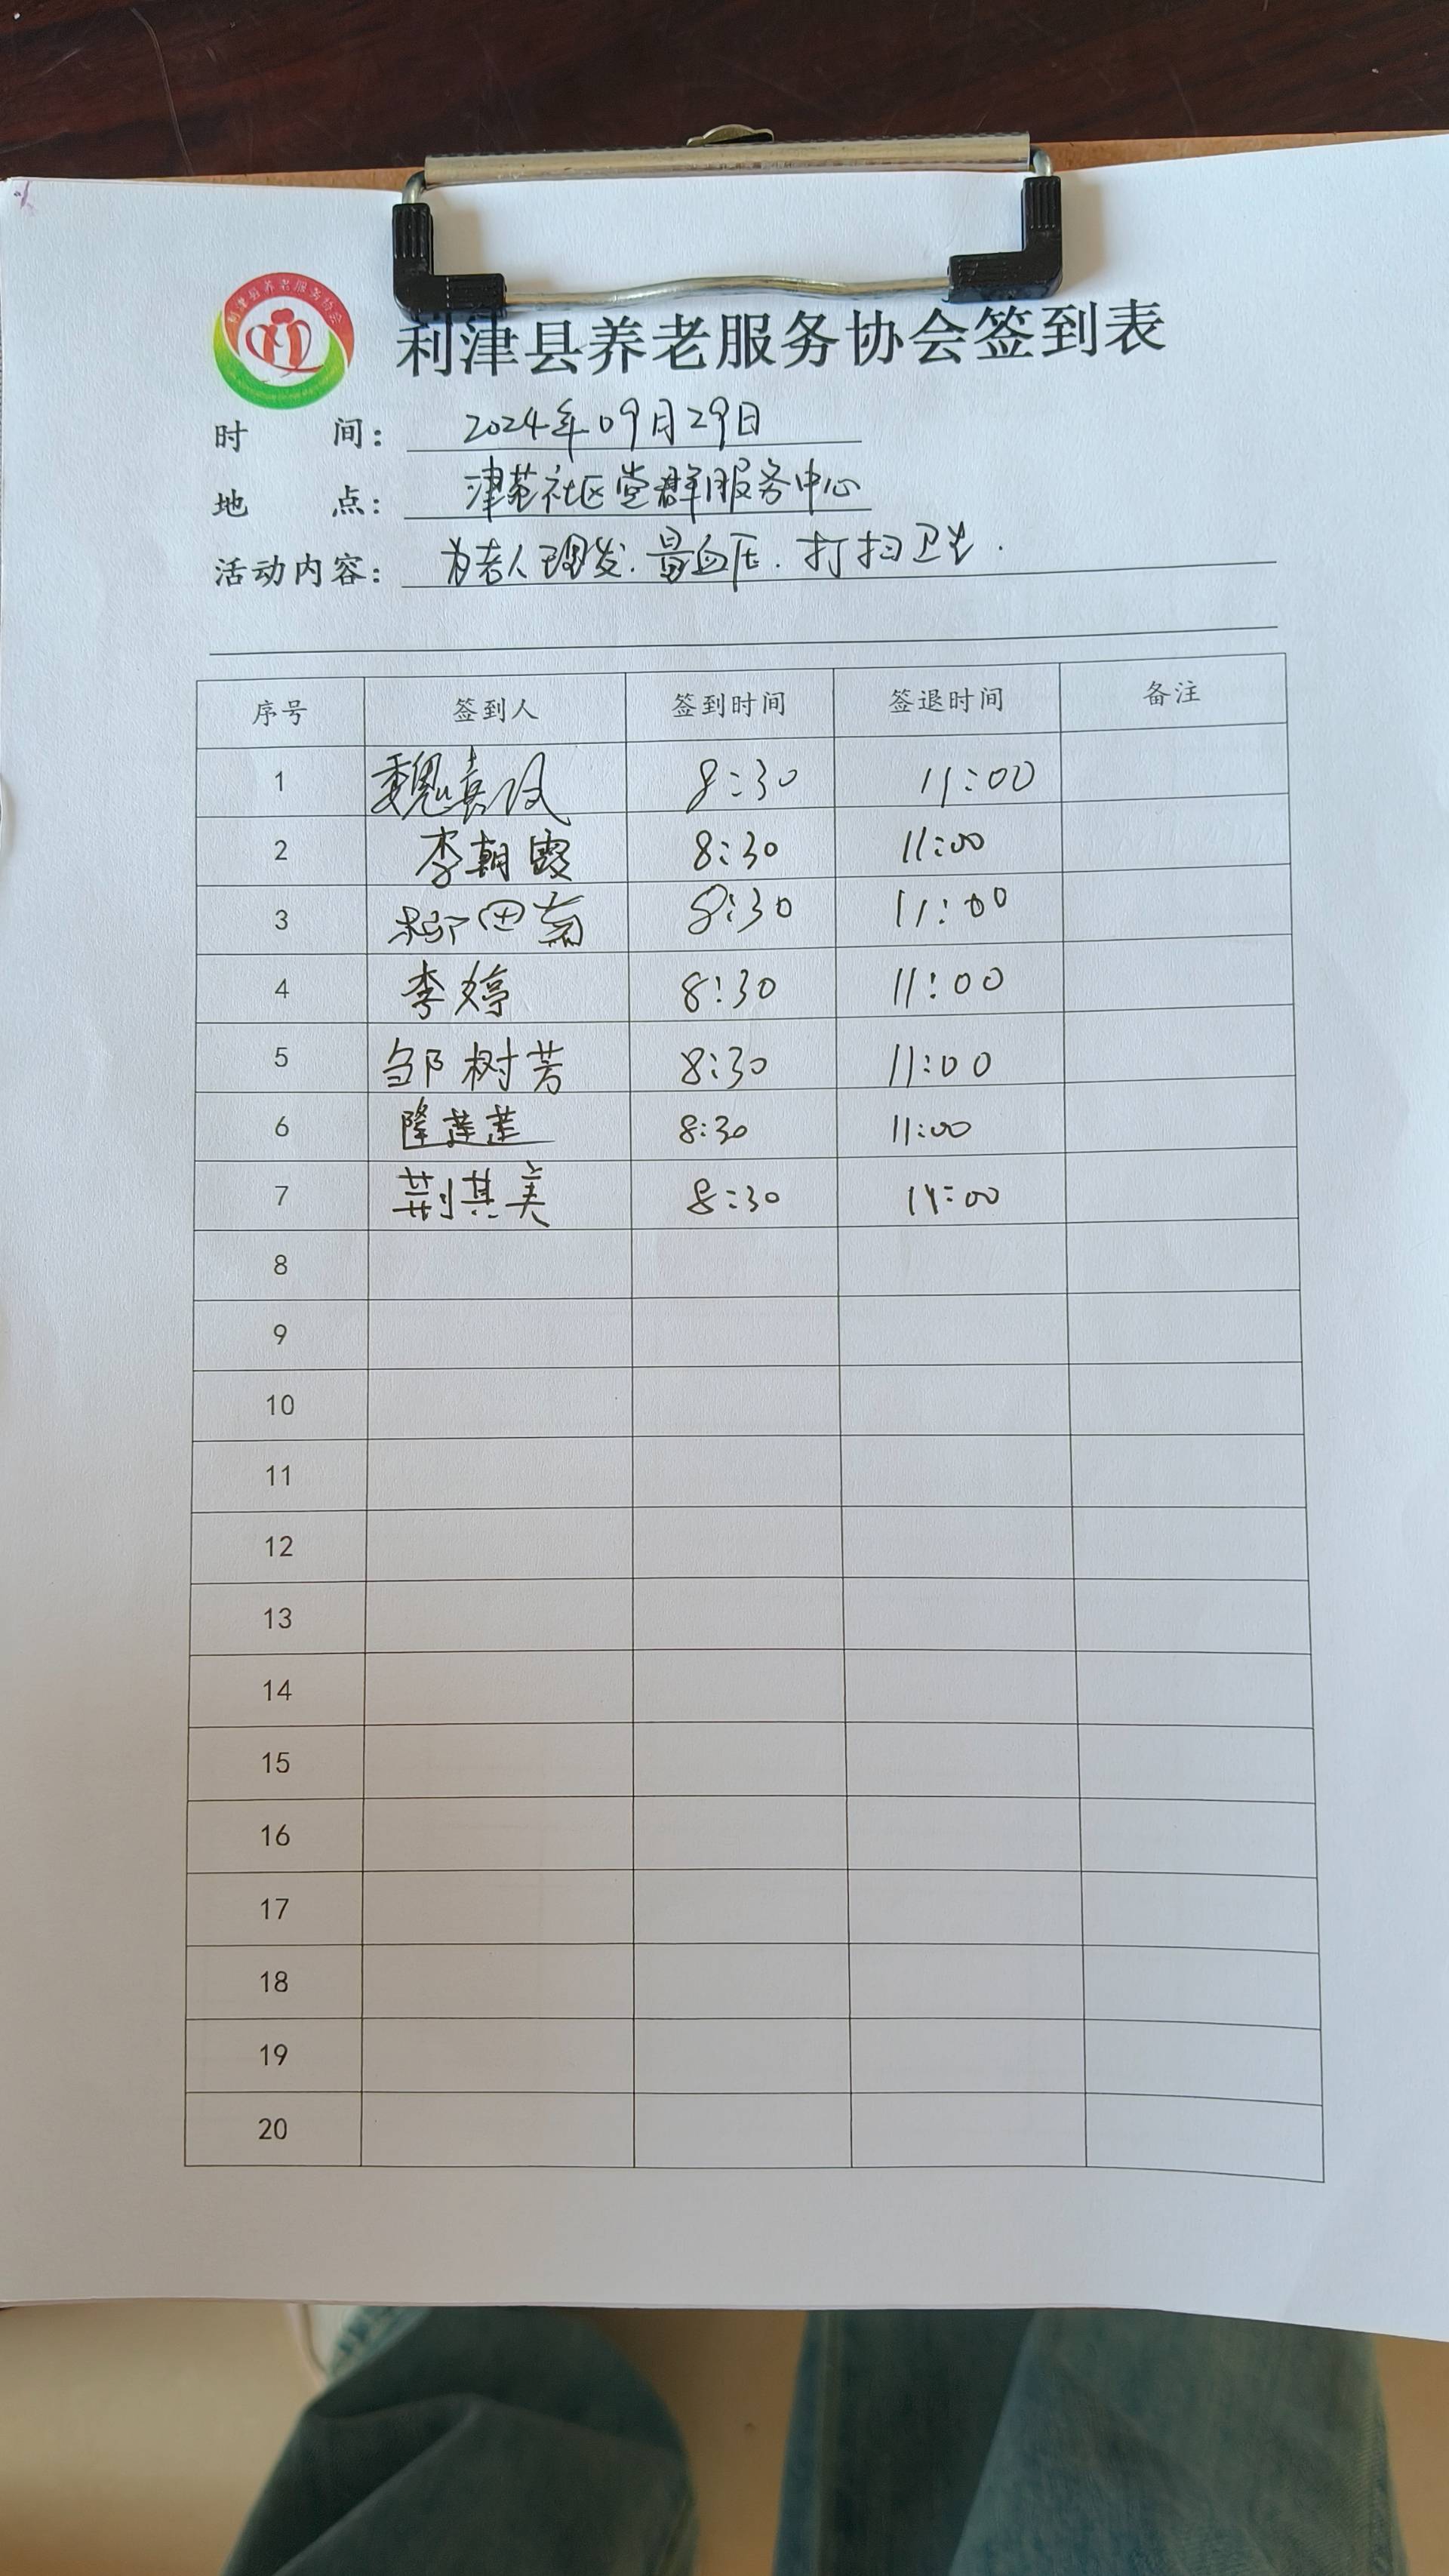 利津县养老服务协会
利津县养老服务协会签到表
时 间： 2024年09月29日
地 点： 津苑社区党群服务中心
活动内容： 为老人理发.量血压.打扫卫生.
序号 签到人 签到时间 签退时间 备注
1 魏嘉 8:30 11:00
2 李朝霞 8:30 11:00
3 柳田菊 8:30 11:00
4 李婷 8:30 11:00
5 邹树芳 8:30 11:00
6 隆莲莲 8:30 11:00
7 荆其美 8:30 11:00
8
9
10
11
12
13
14
15
16
17
18
19
20